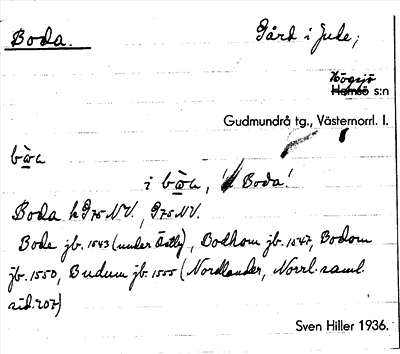 Boda. Gård i Jude;
Högsjö
Hemsö s:n
Gudmundrå tg., Västernorrl. l.
bω̲a
i bω̲a, 'i Boda'
Boda h G75NV., G75NV.
Bode jb. 1543 (under Östby), Bodhom jb. 1547, Bodom
jb. 1550, Budum jb. 1555 (Nordlander, Norrl. saml.
sid. 207)
Sven Hiller 1936.